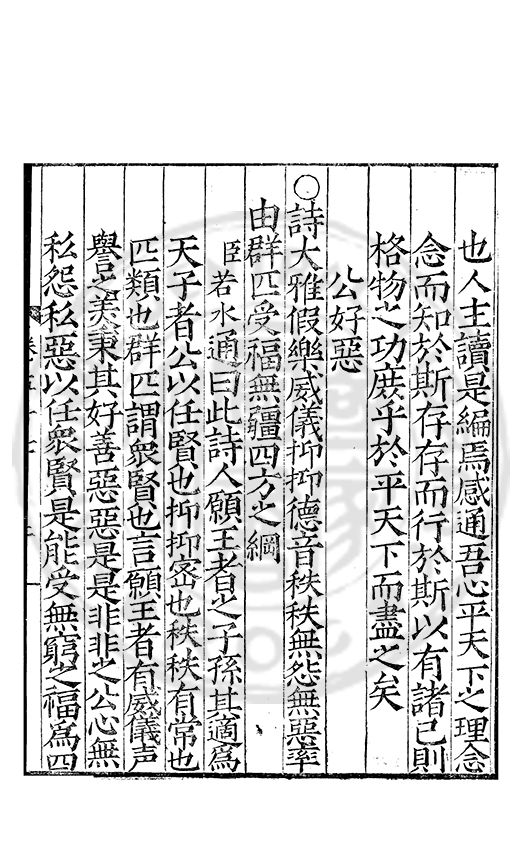 也人主讀是編焉感通吾心平天下之理念
念而知於斯存存而行於斯以有諸已則
格物之功庻乎於平天下而盡之矣
公好惡
○詩大雅假樂威儀抑抑德音秩秩無怨無惡率
由群匹受福無疆四方之綱
臣若水通曰此詩人願王者之子孫其適為
天子者公以任賢也抑抑宻也秩秩有常也
匹類也群匹謂衆賢也言願王者有威儀声
譽之美秉其好善惡惡是是非非之公心無
私怨私惡以任衆賢是能受無窮之福為四